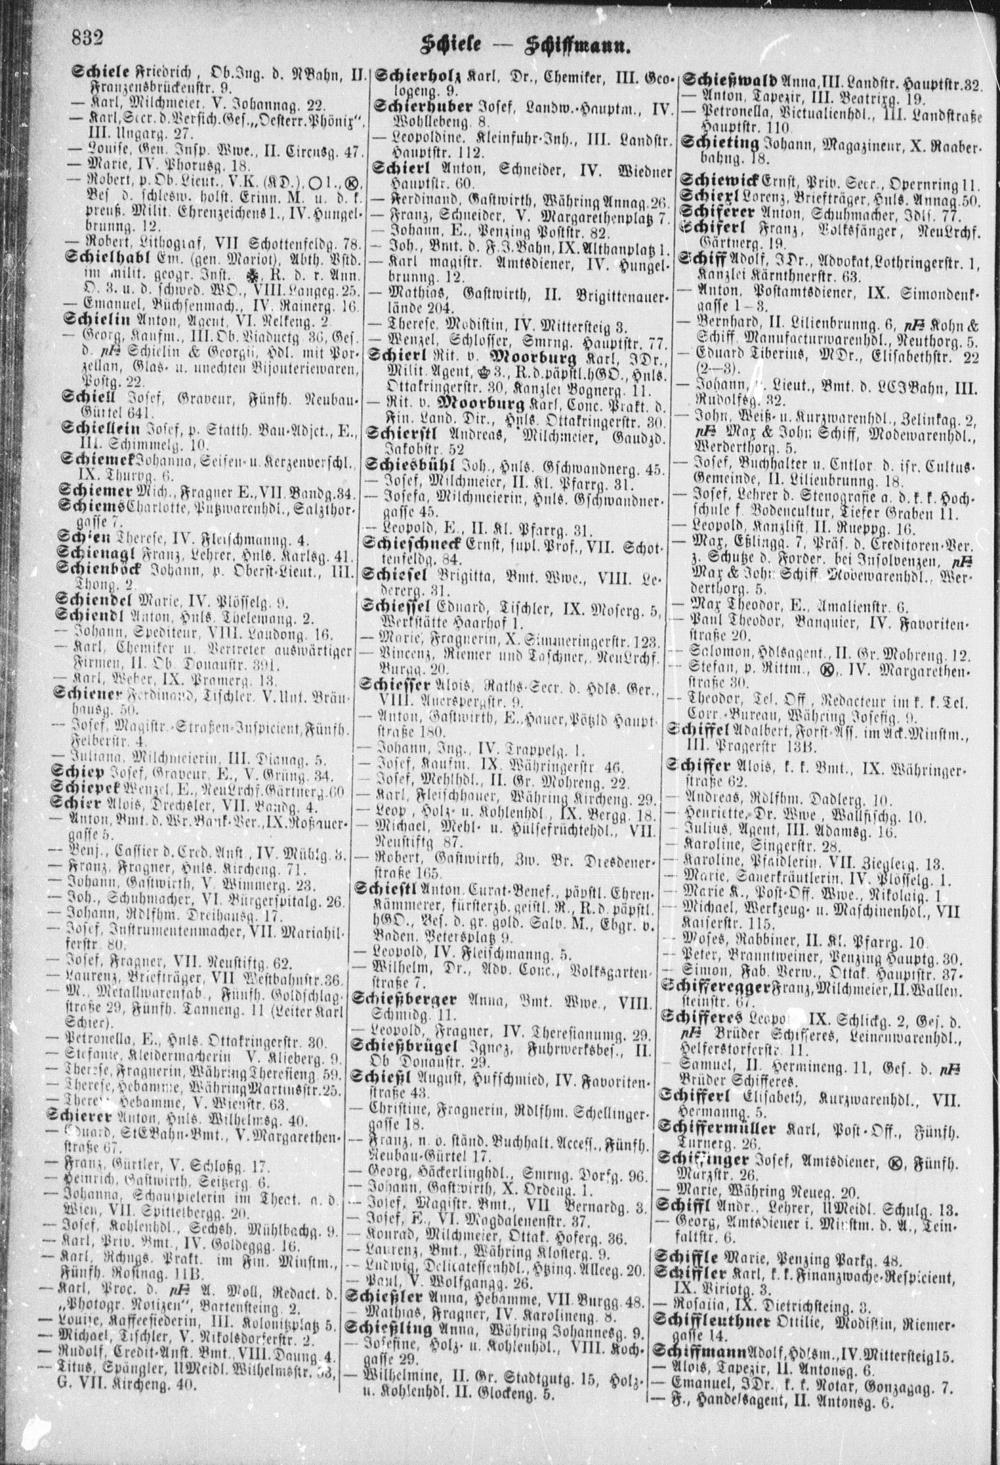 832
Schiele — Schiffmann.
Schiele Friedrich, Ob.Ing. d. NBahn, II.
Franzensbrückenstr. 9.
— Karl, Milchmeier, V. Johannag. 22.
— Karl, Secr. d. Versich.Ges. „Oesterr. Phönix“,
III. Ungarg. 27.
— Louise, Gen. Insp. Wwe., II. Circusg. 47.
— Marie, IV. Phorusg. 18.
— Robert, p. Ob. Lieut., V.K. (KD.), 1.,
Bes. d. schlesw. holst. Erinn. M. u. d. k.
preuß. Milit. Ehrenzeichens 1., IV. Hungel-
brunng. 12.
— Robert, Lithograf, VII Schottenfeldg. 78.
Schielhabl Em. (gen. Mariot), Abth. Vstd.
im milit. geogr. Inst. R. d. r. Ann.
O. 3. u. d. schwed. WO., VIII. Langeg. 25.
— Emanuel, Büchsenmach., IV. Rainerg. 16.
Schielin Anton, Agent, VI. Nelkeng. 2.
— Georg, Kaufm., III. Ob. Viaductg 36, Ges.
d. Schielin & Georgii, Hdl. mit Por-
zellan, Glas- u. unechten Bijouteriewaren,
Postg. 22.
Schiell Josef, Graveur, Fünfh. Neubau-
Gürtel 641.
Schiellein Josef, p. Statth. Bau-Adjct., E.,
III. Schimmelg. 10.
Schiemek Johanna, Seifen- u. Kerzenverschl.,
IX. Thuryg. 6.
Schiemer Mich., Fragner E., VII. Bandg. 34.
Schiems Charlotte, Putzwarenhdl., Salzthor-
gasse 7.
Schien Therese, IV. Fleischmanng. 4.
Schienagl Franz, Lehrer, Hnls. Karlsg. 41.
Schienböck Johann, p. Oberst-Lieut., III.
Thong. 2.
Schiendel Marie, IV. Plösselg. 9.
Schiendl Anton, Hnls. Thelemang. 2.
— Johann, Spediteur, VIII. Laudong. 16.
— Karl, Chemiker u. Vertreter auswärtiger
Firmen, II. Ob. Donaustr. 391.
— Karl, Weber, IX. Pramerg. 13.
Schiener Ferdinand, Tischler, V. Unt. Bräu-
hausg. 50.
— Josef, Magistr.-Straßen-Inspicient, Fünfh.
Felberstr. 4.
— Juliana, Milchmeierin, III. Dianag. 5.
Schiep Josef, Graveur, E., V. Grüng. 34.
Schiepek Wenzel, E., NeuLrchf. Gärtnerg. 60
Schier Alois, Drechsler, VII. Bandg. 4.
— Anton, Bmt. d. Wr. Bank-Ver., IX. Roßauer-
gasse 5.
— Benj., Cassier d. Cred. Anst., IV. Mühlg. 3.
— Franz, Fragner, Hnls. Kircheng. 71.
— Johann, Gastwirth, V. Wimmerg. 23.
— Joh., Schuhmacher, VI. Bürgerspitalg. 26.
— Johann, Rdlfhm. Dreihausg. 17.
— Josef, Instrumentenmacher, VII. Mariahil-
ferstr. 80.
— Josef, Fragner, VII. Neustiftg. 62.
— Laurenz, Briefträger, VII Westbahnstr. 36.
— M., Metallwarenfab., Fünfh. Goldschlag-
straße 29, Fünfh. Tanneng. 11 (Leiter Karl
Schier).
— Petronella, E., Hnls. Ottakringerstr. 30.
— Stefanie, Kleidermacherin V. Klieberg. 9.
— Therese, Fragnerin, Währing Theresieng. 59.
— Therese, Hebamme, Währing Martinsstr. 25.
— Therese Hebamme, V. Wienstr. 63.
Schierer Anton, Hnls. Wilhelmsg. 40.
— Eduard, StEBahn-Bmt., V. Margarethen-
straße 67.
— Franz, Gürtler, V. Schloßg. 17.
— Heinrich, Gastwirth, Seitzerg. 6.
— Johanna, Schauspielerin im Theat. a. d.
Wien, VII. Spittelbergg. 20.
— Josef, Kohlenhdl., Sechsh. Mühlbachg. 9.
— Karl, Priv. Bmt., IV. Goldeggg. 16.
— Karl, Rchngs. Prakt. im Fin. Minstm.,
Fünfh. Rosinag. 11B.
— Karl, Proc. d. A. Moll, Redact. d.
„Photogr. Notizen“, Bartensteing. 2.
— Louise, Kaffeesiederin, III. Kolonitzplatz 5.
— Michael, Tischler, V. Nikolsdorferstr. 2.
— Rudolf, Credit-Anst. Bmt., VIII. Daung 4.
— Titus, Spängler, UMeidl. Wilhelmsstr. 53,
G. VII. Kircheng. 40.
Schierholz Karl, Dr., Chemiker, III. Geo-
logeng. 9.
Schierhuber Josef, Landw.-Hauptm., IV.
Wohllebeng. 8.
— Leopoldine, Kleinfuhr-Inh., III. Landstr.
Hauptstr. 112.
Schierl Anton, Schneider, IV. Wiedner
Hauptstr. 60.
— Ferdinand, Gastwirth, Währing Annag. 26.
— Franz, Schneider, V. Margarethenplatz 7.
— Johann, E., Penzing Poststr. 82.
— Joh., Bmt. d. F.J.Bahn, IX. Althanplatz 1.
— Karl magistr. Amtsdiener, IV. Hungel-
brunng. 12.
— Mathias, Gastwirth, II. Brigittenauer-
lände 204.
— Therese, Modistin, IV. Mittersteig 3.
— Wenzel, Schlosser, Smrng. Hauptstr. 77.
Schierl Rit. v. Moorburg Karl, JDr.,
Milit. Agent, 3., R. d. päpstl. hGO., Hnls.
Ottakringerstr. 30, Kanzlei Bognerg. 11.
— Rit. v. Moorburg Karl, Conc. Prakt. d.
Fin. Land. Dir., Hnls. Ottakringerstr. 30.
Schierstl Andreas, Milchmeier, Gaudzd.
Jakobstr. 52
Schiesbühl Joh., Hnls. Gschwandnerg. 45.
— Josef, Milchmeier, II. Kl. Pfarrg. 31.
— Josefa, Milchmeierin, Hnls. Gschwandner-
gasse 45.
— Leopold, E., II. Kl. Pfarrg. 31.
Schieschneck Ernst, supl. Prof., VII. Schot-
tenfeldg. 84.
Schiesel Brigitta, Bmt. Wwe., VIII. Le-
dererg. 31.
Schiessel Eduard, Tischler, IX. Moserg. 5,
Werkstätte Haarhof 1.
— Marie, Fragnerin, X. Simmeringerstr. 123.
— Vincenz, Riemer und Taschner, NeuLrchf.
Burgg. 20.
Schiesser Alois, Raths-Secr. d. Hdls. Ger.,
VIII. Auerspergstr. 9.
— Anton, Gastwirth, E., Hauer, Pötzld Haupt-
straße 180.
— Johann, Ing., IV. Trappelg. 1.
— Josef, Kaufm. IX. Währingerstr 46.
— Josef, Mehlhdl., II. Gr. Mohreng. 22.
— Karl, Fleischhauer, Währing Kircheng. 29.
— Leop., Holz- u. Kohlenhdl., IX. Bergg. 18.
— Michael, Mehl- u. Hülsefrüchtehdl., VII.
Neustiftg 87.
— Robert, Gastwirth, Zw. Br. Dresdener-
straße 165.
Schiestl Anton, Curat-Benef., päpstl. Ehren-
Kämmerer, fürsterzb. geistl. R., R. d. päpstl.
hGO., Bes. d. gr. gold. Salv. M., Ehgr. v.
Baden, Petersplatz 9.
— Leopold, IV. Fleischmanng. 5.
— Wilhelm, Dr., Adv. Conc., Volksgarten-
straße 7.
Schießberger Anna, Bmt. Wwe., VIII.
Schmidg. 11.
— Leopold, Fragner, IV. Theresianumg. 29.
Schießbrügel Ignaz, Fuhrwerksbes., II.
Ob Donaustr. 29.
Schießl August, Hufschmied, IV. Favoriten-
straße 43.
— Christine, Fragnerin, Rdlfhm. Schellinger-
gasse 18.
— Franz, n. o. ständ. Buchhalt. Access., Fünfh.
Neubau-Gürtel 17.
— Georg, Häckerlinghdl., Smrng. Dorfg. 96.
— Johann, Gastwirth, X. Ordeng. 1.
— Josef, Magistr. Bmt., VII Bernardg. 3.
— Josef, E., VI. Magdalenenstr. 37.
— Konrad, Milchmeier, Ottak. Hoferg. 36.
— Laurenz, Bmt., Währing Klosterg. 9.
— Ludwig, Delicatessenhdl., Htzing. Alleeg. 20.
— Paul, V. Wolfgangg. 26.
Schießler Anna, Hebamme, VII. Burgg. 48.
— Mathias, Fragner, IV. Karolineng. 8.
Schießling Anna, Währing Johannesg. 9.
— Josefine, Holz- u. Kohlenhdl., VIII. Koch-
gasse 29.
— Wilhelmine, II. Gr. Stadtgutg. 15, Holz-
u. Kohlenhdl. II. Glockeng. 5.
Schießwald Anna, III. Landstr. Hauptstr. 32.
— Anton, Tapezir, III. Beatrixg. 19.
— Petronella, Victualienhdl., III. Landstraße
Hauptstr. 110.
Schieting Johann, Magazineur, X. Raaber-
bahng. 18.
Schiewick Ernst, Priv. Secr., Opernring 11.
Schiexl Lorenz, Briefträger, Hnls. Annag. 50.
Schiferer Anton, Schuhmacher, Jdls. 77.
Schiferl Franz, Volksfänger, NeuLrchf.
Gärtnerg. 19.
Schiff Adolf, JDr., Advokat, Lothringerstr. 1,
Kanzlei Kärnthnerstr. 63.
— Anton, Postamtsdiener, IX. Simondenk-
gasse 1—3.
— Bernhard, II. Lilienbrunng. 6, Kohn &
Schiff, Manufacturwarenhdl., Neuthorg. 5.
— Eduard Tiberius, MDr., Elisabethstr. 22
(2—3).
— Johann, Lieut., Bmt. d. LCJBahn, III.
Rudolfsg. 32.
— John, Weiß- u. Kurzwarenhdl., Zelinkag. 2,
Max & John Schiff, Modewarenhdl.,
Werderthorg. 5.
— Josef, Buchhalter u. Cntlor d. isr. Cultus-
Gemeinde, II. Lilienbrunng. 18.
— Josef, Lehrer d. Stenografie a. d. k. k. Hoch-
schule f. Bodencultur, Tiefer Graben 11.
— Leopold, Kanzlist, II. Rueppg. 16.
— Max, Eßlingg. 7, Präs. d. Creditoren-Ver.
z. Schutze d. Forder. bei Insolvenzen,
Max & John Schiff, Modewarenhdl., Wer-
derthorg. 5.
— Max Theodor, E., Amalienstr. 6.
— Paul Theodor, Banquier, IV. Favoriten-
straße 20.
— Salomon, Hdlsagent., II. Gr. Mohreng. 12.
— Stefan, p. Rittm., IV. Margarethen-
straße 30.
— Theodor, Tel. Off., Redacteur im k. k. Tel.
Corr.-Bureau, Währing Josefig. 9.
Schiffel Adalbert, Forst-Ass. im Ack. Minstm.,
III. Pragerstr 13B.
Schiffer Alois, k. k. Bmt., IX. Währinger-
straße 62.
— Andreas, Rdlfhm. Dadlerg. 10.
— Henriette, Dr. Wwe, Wallfischg. 10.
— Julius, Agent, III. Adamsg. 16.
— Karoline, Singerstr. 28.
— Karoline, Pfaidlerin, VII. Zieglerg. 13.
— Marie, Sauerkräutlerin, IV. Plösselg. 1.
— Marie K., Post-Off. Wwe., Nikolaig. 1.
— Michael, Werkzeug- u. Maschinenhdl., VII
Kaiserstr. 115.
— Moses, Rabbiner, II. Kl. Pfarrg. 10.
— Peter, Branntweiner, Penzing Hauptg. 30.
— Simon, Fab. Verw., Ottak. Hauptstr. 37.
Schifferegger Franz, Milchmeier, II. Wallen-
steinstr. 67.
Schifferes Leopo IX. Schlickg. 2, Ges. d.
Brüder Schifferes, Leinenwarenhdl.,
Helferstorferstr. 11.
— Samuel, II. Hermineng. 11, Ges. d.
Brüder Schifferes.
Schifferl Elisabeth, Kurzwarenhdl., VII.
Hermanng. 5.
Schiffermüller Karl, Post-Off., Fünfh.
Turnerg. 26.
Schiffinger Josef, Amtsdiener, Fünfh.
Märzstr. 26.
— Marie, Währing Neueg. 20.
Schiffl Andr., Lehrer, UMeidl. Schulg. 13.
— Georg, Amtsdiener i. Minstm. d. A., Tein-
faltstr. 6.
Schiffle Marie, Penzing Parkg. 48.
Schiffler Karl, k. k. Finanzwache-Respicient,
IX. Viriotg. 3.
— Rosalia, IX. Dietrichsteing. 3.
Schiffleuthner Ottilie, Modistin, Riemer-
gasse 14.
Schiffmann Adolf, Hdlsm., IV. Mittersteig 15.
— Alois, Tapezir, II. Antonsg. 6.
— Emanuel, JDr. k. k. Notar, Gonzagag. 7.
— F., Handelsagent, II. Antonsg. 6.